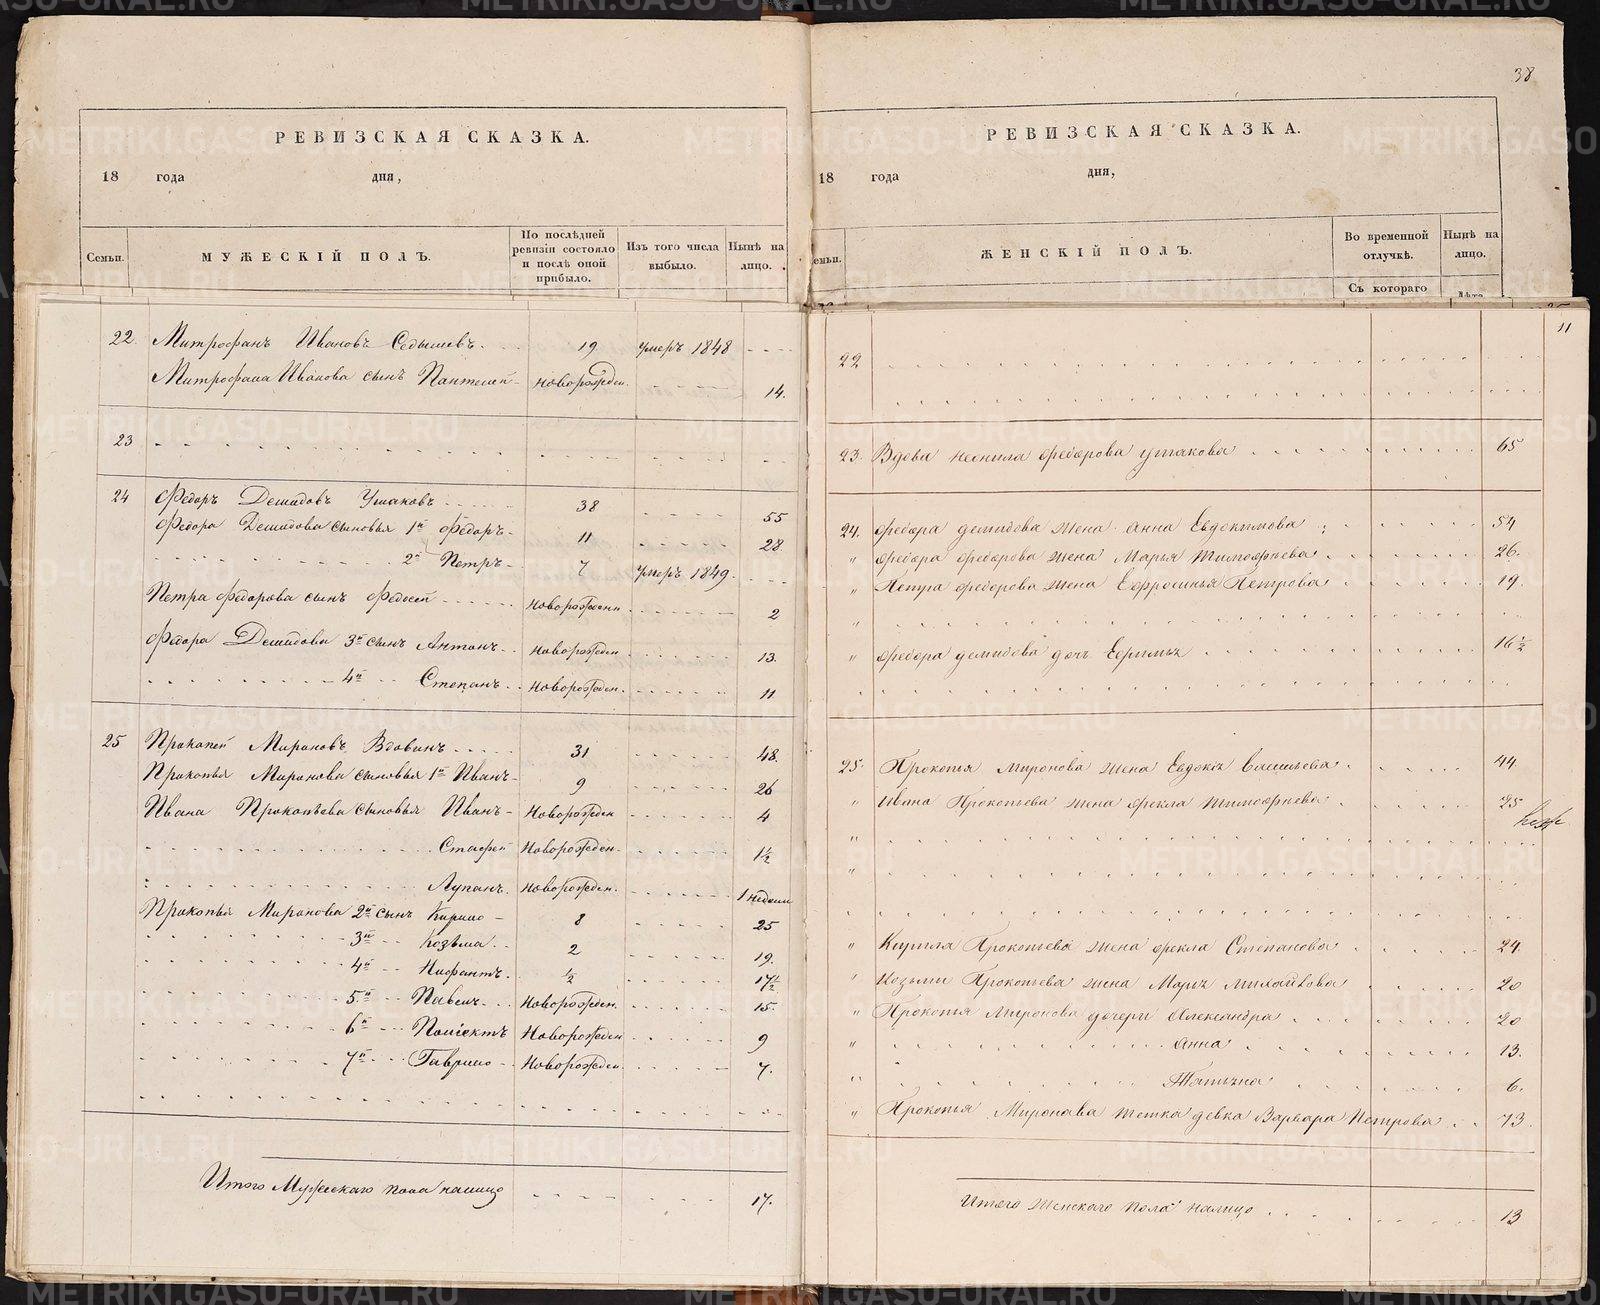 38
РЕВИЗСКАЯ СКАЗКА.
18 года дня,
Семьи.
МУЖЕСКІЙ ПОЛЪ.
По послѣдней ревизіи состояло и послѣ оной прибыло.
Изъ того числа выбыло.
Нынѣ на лицо.
22 Митрофанъ Ивановъ 19 умеръ 1848
Митрофана Иванова сынъ Пантелей новорожден. 14.
23
24 Федоръ Демидовъ Ушаковъ 38 55
Федора Демидова сыновья 1й Федоръ 11 28
2й Петръ 7 умеръ 1849.
Петра Федорова сынъ Федосей новорожденн. 2
Федора Демидова 3й сынъ Антонъ новорожден 13.
4й Степанъ новорожден. 11
25 Прокопей Мироновъ Вдовинъ 31 48.
Прокопья Миронова сыновья 1й Иванъ 9 26
Ивана Прокопьева сыновья Иванъ Новорожден 4
Стафей Новорожден. 1½
Лупанъ. Новорожден. 1 недели
Прокопья Миронова 2й сынъ Кирило 8 25
3й Козьма 2 19.
4й Нифантъ. ½ 17½
5й Павелъ Новорожден. 15.
6й Новорожден 9
7й Гаврило Новорожден. 7.
Итого Мужескаго пола налицо 17.
РЕВИЗСКАЯ СКАЗКА.
18 года дня,
ЖЕНСКІЙ ПОЛЪ.
Во временной отлучкѣ.
Нынѣ на лицо.
Съ котораго
Лѣта
11
22
23. Вдова Ненила Федорова Ушакова 65
24. Федора Демидова жена Анна Евдокимова 54
" Федора Федорова жена Марья Тимофѣева 26.
" Петра Федорова жена Ефросинья Петрова 19.
"
" Федора Демидова дочь 16½
25. Прокопья Миронова жена Евдокія Васильева 44
" Ивана Прокопьева жена Фекла Тимофѣева 25
"
"
" Кирила Прокопьева жена Фекла Степанова 24.
" Козьмы Прокопьева жена Марья Михайлова 20
" Прокопья Миронова дочери Александра 20
" Анна 13.
" Татьяна 6.
" Прокопья Миронова тетка девка Варвара Петрова 73
Итого женскаго пола налицо 13
METRIKI.GASO-URAL.RU